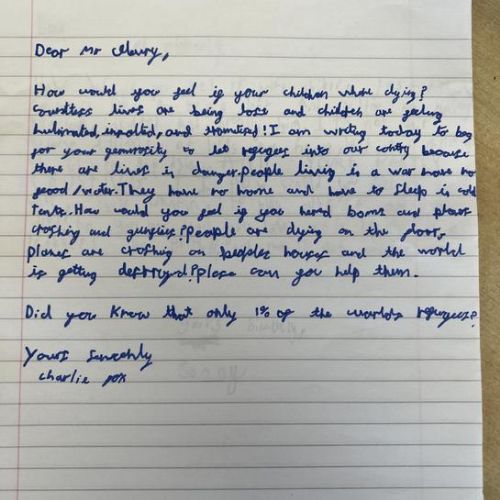 Dear Mr
How would you feel if your children where dying?
Countless lives are being lost and children are feeling
and I am writing today to beg
for your generosity to let refugees into our contry because
there are lives in danger.people living in a war have no
food/water.They have no home and have to sleep in cold
tents.How would you feel if you hered boms and planes
crashing and gunfires?people are dying on the floor,
planes are crashing on peoples houses and the world
is getting destroyed?please can you help them.
Did you know that only 1% of the worlds refugees?
Yours
charlie fox